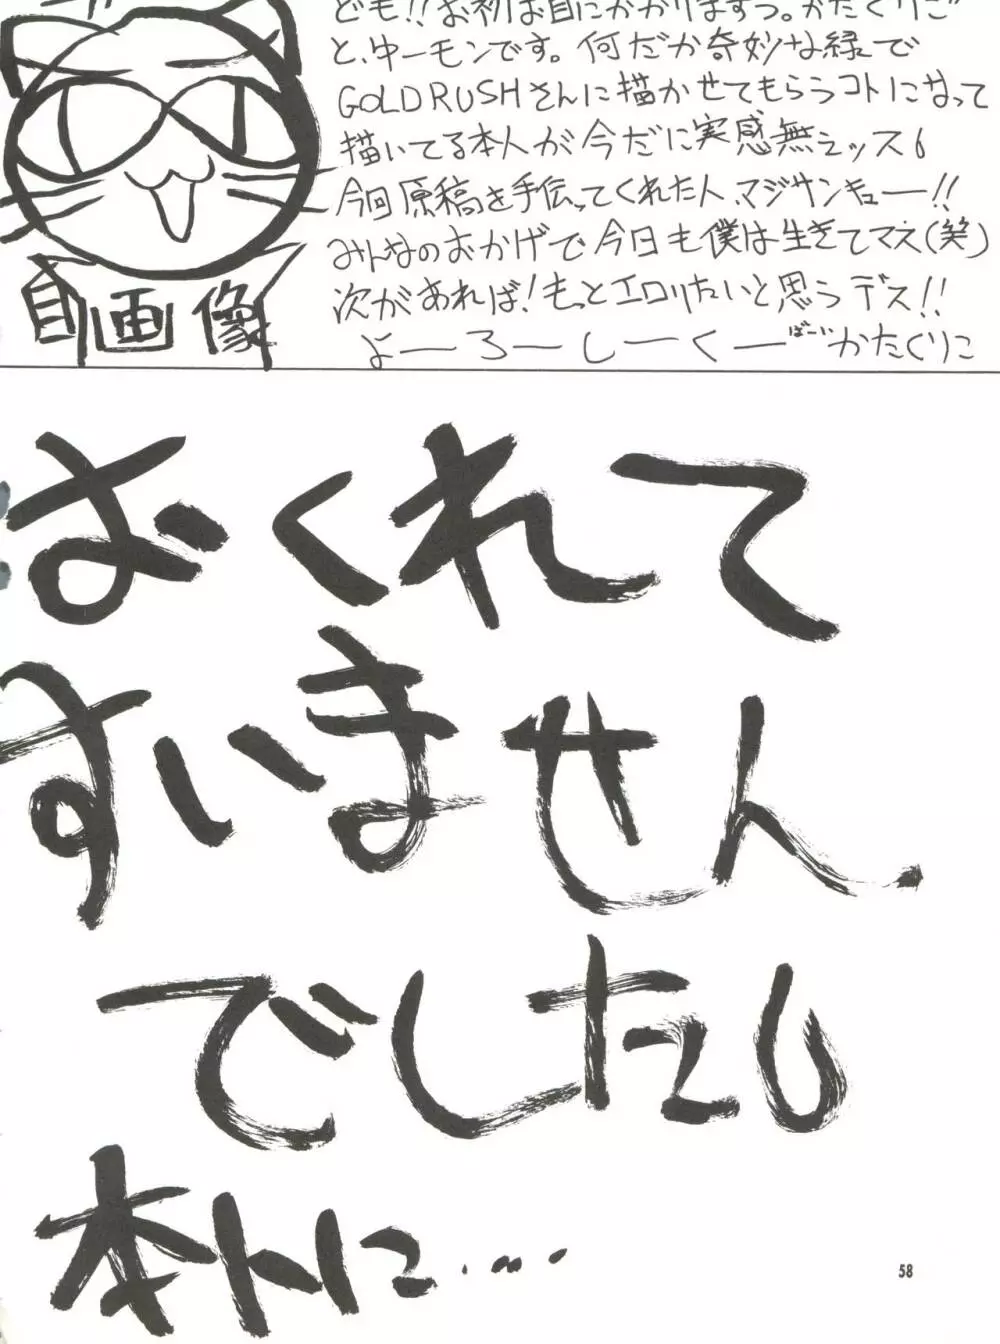 ども!!お初お目にかかりますっ。かたくりこ
と、中ーモンです。何だか奇妙な縁で
GOLD RUSHさんに描かせてもらうコトになって
描いてる本人が今だに実感無えッス6
今回原稿を手伝ってくれた人、マジサンキュー!!
みんなのおかげで今日も僕は生きてマス(笑)
次があれば!もっとエロりたいと思うデス!!
よーろーしーくー ばーい かたくりこ
自画像
おくれて
すいません
でした6
本トに・・・・
58